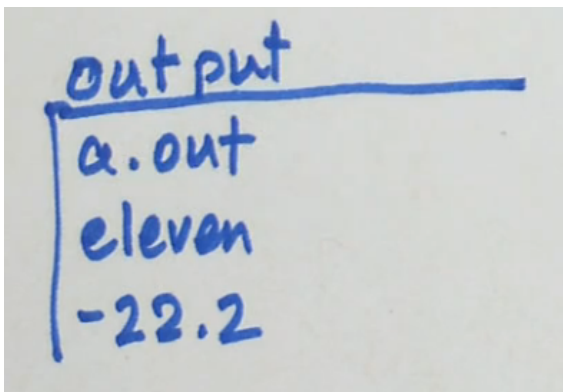 output
a.out
eleven
-22.2